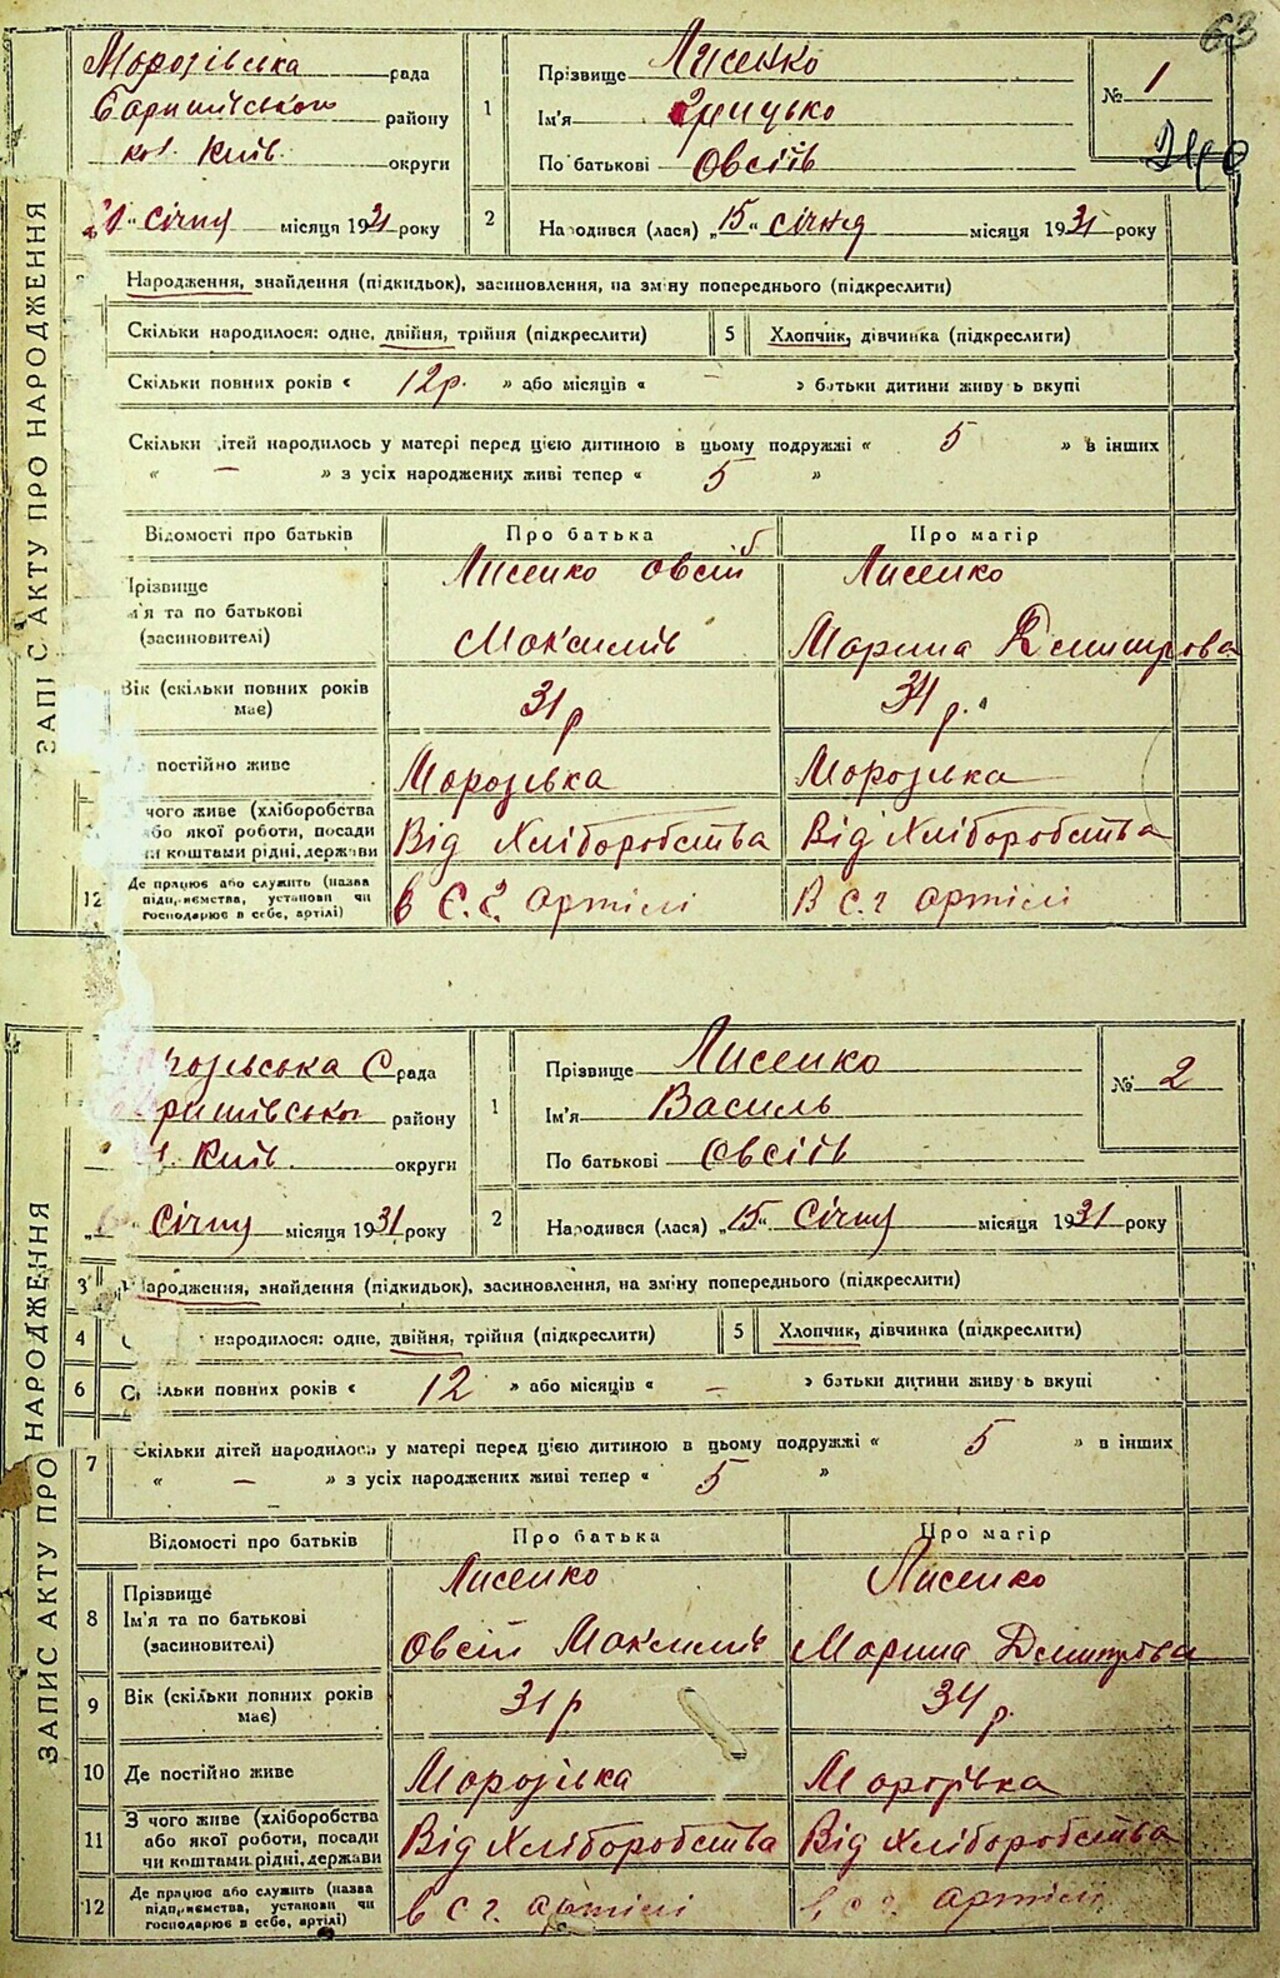 63
ЗАПИС АКТУ ПРО НАРОДЖЕННЯ
Морозівська рада
Баришівського району
Київ. округи
1 Прізвище Лисенко
Ім'я Грицько
По батькові Овсіїв
№ 1
" Січня місяця 1931 року
2 Народився (лася) „15" січня місяця 1931 року
Народження, знайдення (підкидьок), засиновлення, на зміну попереднього (підкреслити)
Скільки народилося: одне, двійня, трійня (підкреслити) 5 Хлопчик, дівчинка (підкреслити)
Скільки повних років « 12р. » або місяців « – » батьки дитини живуть вкупі
Скільки дітей народилось у матері перед цією дитиною в цьому подружжі « 5 » в інших
« – » з усіх народжених живі тепер « 5 »
Відомості про батьків Про батька Про матір
Прізвище Лисенко Овсій Лисенко
м'я та по батькові
(засиновителі) Максимів Марина Дмитрова
Вік (скільки повних років має) 31р 34р.
постійно живе Морозівка Морозівка
чого живе (хліборобства або якої роботи, посади чи коштами рідні, держави Від Хліборобства Від Хліборобства
12 Де працює або служить (назва підприємства, установи чи господарює в себе, артілі) в С.г артілі в с.г артілі
ЗАПИС АКТУ ПРО НАРОДЖЕННЯ
розівська С рада
ришівськог району
Київ. округи
1 Прізвище Лисенко
Ім'я Василь
По батькові Овсіїв
№ 2
" Січня місяця 1931 року
2 Народився (лася) „15" Січня місяця 1931 року
3 Народження, знайдення (підкидьок), засиновлення, на зміну попереднього (підкреслити)
4 народилося: одне, двійня, трійня (підкреслити) 5 Хлопчик, дівчинка (підкреслити)
6 Скільки повних років « 12 » або місяців « – » батьки дитини живуть вкупі
7 Скільки дітей народилось у матері перед цією дитиною в цьому подружжі « 5 » в інших
« – » з усіх народжених живі тепер « 5 »
Відомості про батьків Про батька Про матір
8 Прізвище Лисенко Лисенко
Ім'я та по батькові
(засиновителі) Овсій Максимів Марина Дмитрова
9 Вік (скільки повних років має) 31р 34р.
10 Де постійно живе Морозівка Морозівка
11 З чого живе (хліборобства або якої роботи, посади чи коштами рідні, держави Від Хліборобства Від Хліборобства
12 Де працює або служить (назва підприємства, установи чи господарює в себе, артілі) в с г. артілі в с г. артілі